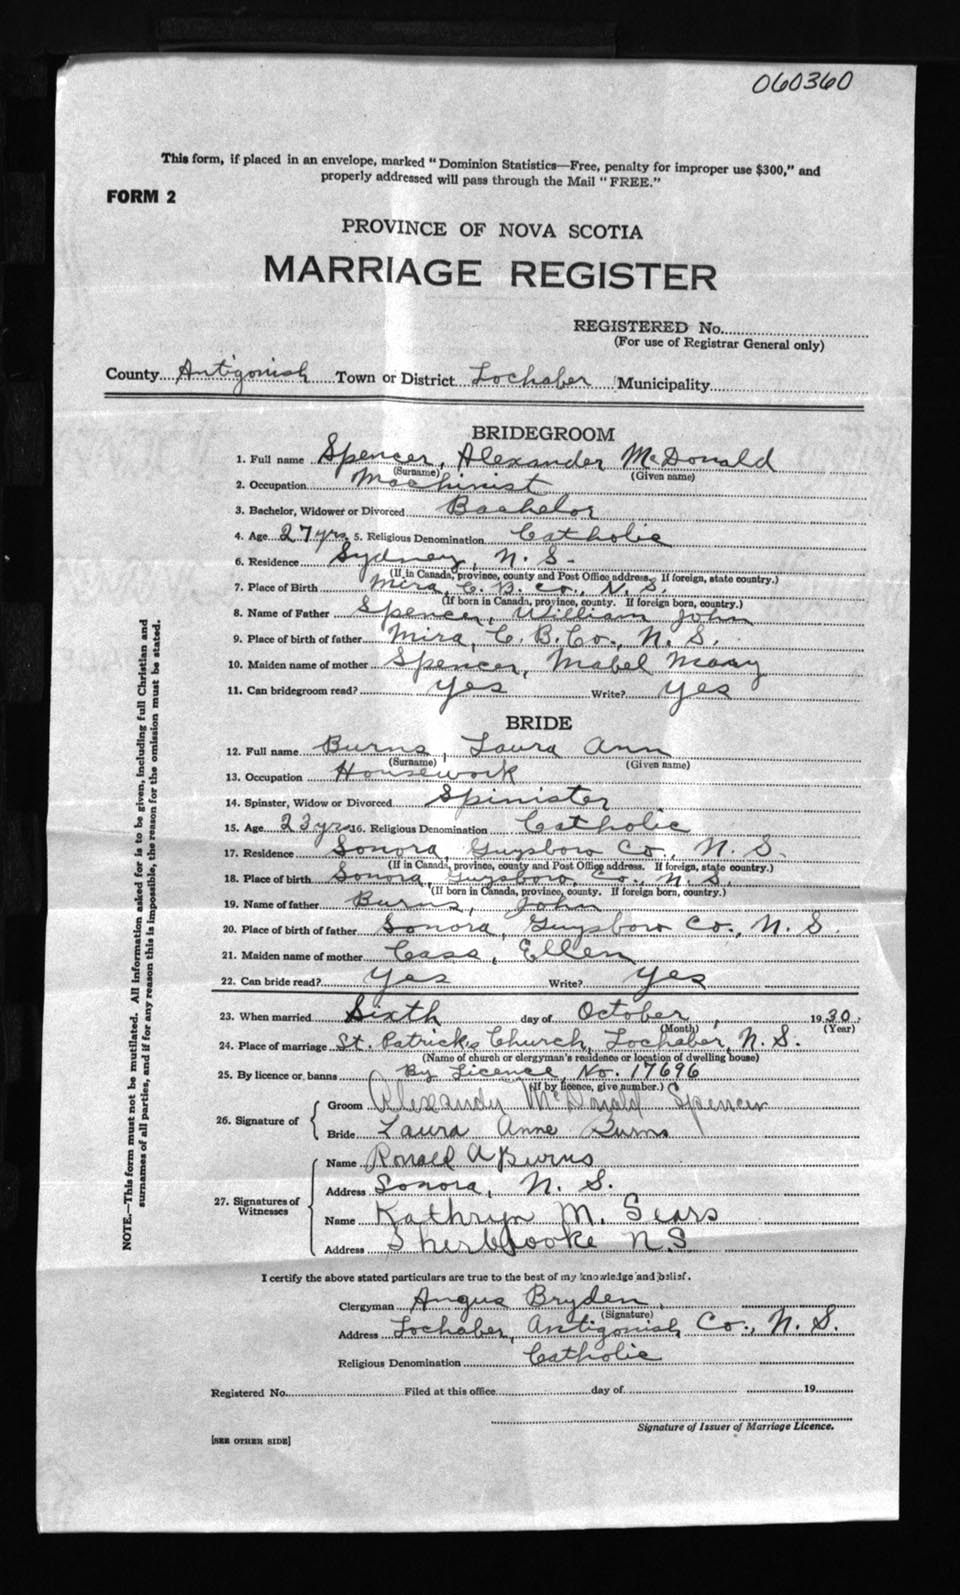 060360
This form, if placed in an envelope, marked "Dominion Statistics—Free, penalty for improper use $300," and
properly addressed will pass through the Mail "FREE."
FORM 2
PROVINCE OF NOVA SCOTIA
MARRIAGE REGISTER
REGISTERED No.
(For use of Registrar General only)
County Antigonish Town or District Lochaber Municipality
BRIDEGROOM
1. Full name Spencer, Alexander McDonald
(Surname) (Given name)
2. Occupation Machinist
3. Bachelor, Widower or Divorced Bachelor
4. Age 27 yrs 5. Religious Denomination Catholic
6. Residence Sydney, N. S.
(If in Canada, province, county and Post Office address. If foreign, state country.)
7. Place of Birth Mira, C. B. Co., N. S.
(If born in Canada, province, county. If foreign born, country.)
8. Name of Father Spencer, William John
9. Place of birth of father Mira, C. B. Co., N. S.
10. Maiden name of mother Spencer, Mabel Mary
11. Can bridegroom read? yes Write? yes
BRIDE
12. Full name Burns, Laura Ann
(Surname) (Given name)
13. Occupation Housework
14. Spinster, Widow or Divorced Spinister
15. Age 23 yrs 16. Religious Denomination Catholic
17. Residence Sonora, Guysboro Co., N. S.
(If in Canada, province, county and Post Office address. If foreign, state country.)
18. Place of birth Sonora, Guysboro Co., N. S.
(If born in Canada, province, county. If foreign born, country.)
19. Name of father Burns, John
20. Place of birth of father Sonora, Guysboro Co., N. S.
21. Maiden name of mother Cass, Ellen
22. Can bride read? Yes Write? Yes
23. When married Sixth day of October, 1930.
(Month) (Year)
24. Place of marriage St. Patrick's Church, Lochaber, N. S.
(Name of church or clergyman's residence or location of dwelling house)
25. By licence or banns By Licence, No. 17696
(If by licence, give number.)
26. Signature of
Groom Alexander McDonald Spencer
Bride Laura Anne Burns
27. Signatures of Witnesses
Name Ronald A Burns
Address Sonora, N. S.
Name Kathryn M. Sears
Address Sherbrooke N.S
I certify the above stated particulars are true to the best of my knowledge and belief.
Clergyman Angus Bryden
(Signature)
Address Lochaber, Antigonish Co., N. S.
Religious Denomination Catholic
Registered No. Filed at this office day of 19
Signature of Issuer of Marriage Licence.
[SEE OTHER SIDE]
NOTE.—This form must not be mutilated. All information asked for is to be given, including full Christian and
surnames of all parties, and if for any reason this is impossible, the reason for the omission must be stated.